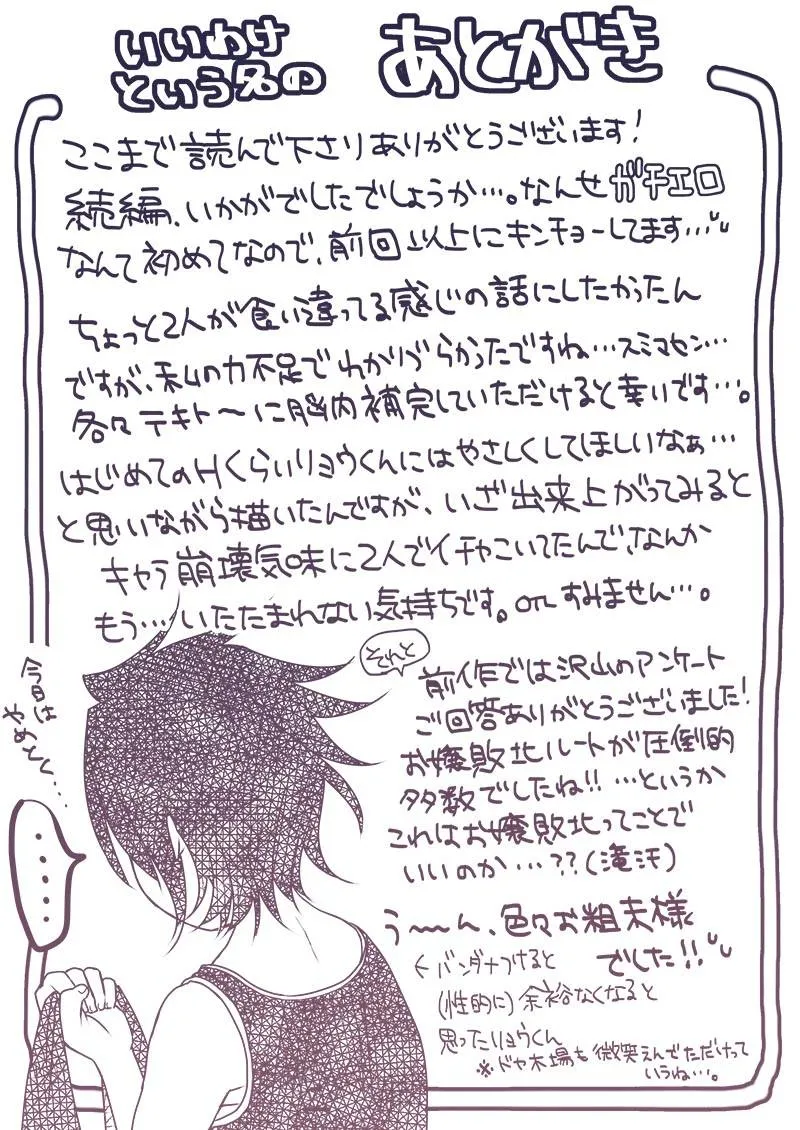 いいわけ
という名の
あとがき
ここまで読んで下さりありがとうございます!
続編、いかがでしたでしょうか…。なんせガチエロ
なんて初めてなので、前回以上にキンチョーしてます…
ちょっと2人が食い違ってる感じの話にしたかったん
ですが、私の力不足でわかりづらかったですね…スミマセン…
各々テキト〜に脳内補完していただけると幸いです…。
はじめてのHくらいリョウくんにはやさしくしてほしいなぁ…
と思いながら描いたんですが、いざ出来上がってみると
キャラ崩壊気味に2人でイチャこいてたんで、なんか
もう…いたたまれない気持ちです。orzすみません…。
それと
前作では沢山のアンケート
ご回答ありがとうございました!
お嬢敗北ルートが圧倒的
多数でしたね!!…というか
これはお嬢敗北ってことで
いいのか…??(滝汗)
う〜〜ん、色々お粗末様
でした!!
←バンダナつけると
(性的に)余裕なくなると
思ったリョウくん
※ドヤ木場も微笑えんでただけって
いうね…。
今日は
やめとく…
....